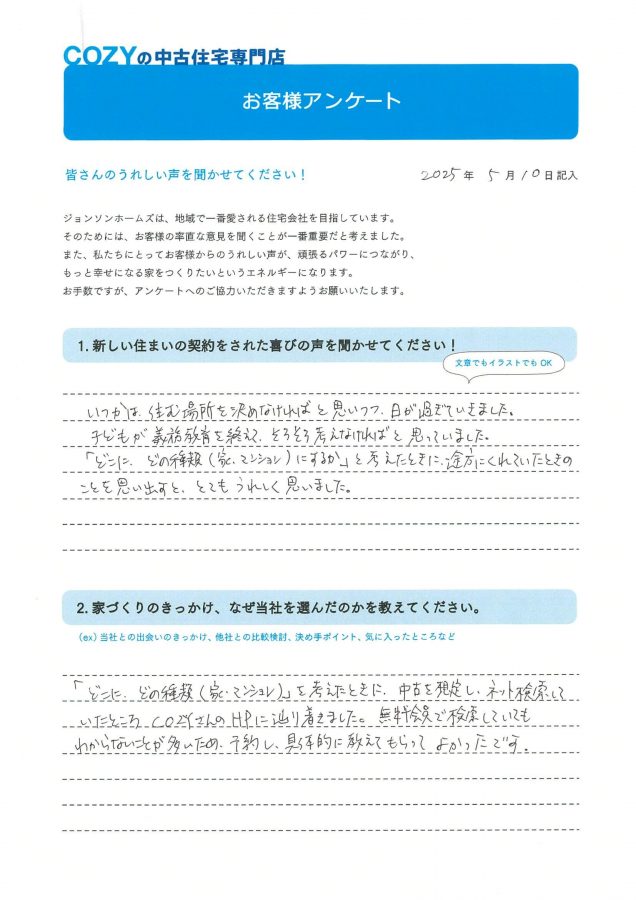 COZYの中古住宅専門店
お客様アンケート
皆さんのうれしい声を聞かせてください！
2025年 5月 10日記入
ジョンソンホームズは、地域で一番愛される住宅会社を目指しています。
そのためには、お客様の率直な意見を聞くことが一番重要だと考えました。
また、私たちにとってお客様からのうれしい声が、頑張るパワーにつながり、
もっと幸せになる家をつくりたいというエネルギーになります。
お手数ですが、アンケートへのご協力いただきますようお願いいたします。
1. 新しい住まいの契約をされた喜びの声を聞かせてください！
文章でもイラストでも OK
いつかは、住む場所を決めなければと思いつつ、日が過ぎていきました。
子どもが義務教育を終えて、そろそろ考えなければと思っていました。
「どこに、どの種類（家・マンション）にするか」と考えたときに、途方にくれていたときの
ことを思い出すと、とてもうれしく思いました。
2. 家づくりのきっかけ、なぜ当社を選んだのかを教えてください。
（ex）当社との出会いのきっかけ、他社との比較検討、決め手ポイント、気に入ったところなど
「どこに、どの種類（家・マンション）」を考えたときに、中古を想定し、ネット検索して
いたところ COZYさんのHPに辿り着きました。無料会員で検索していても
わからないことが多いため、予約し、具体的に教えてもらって よかったです。